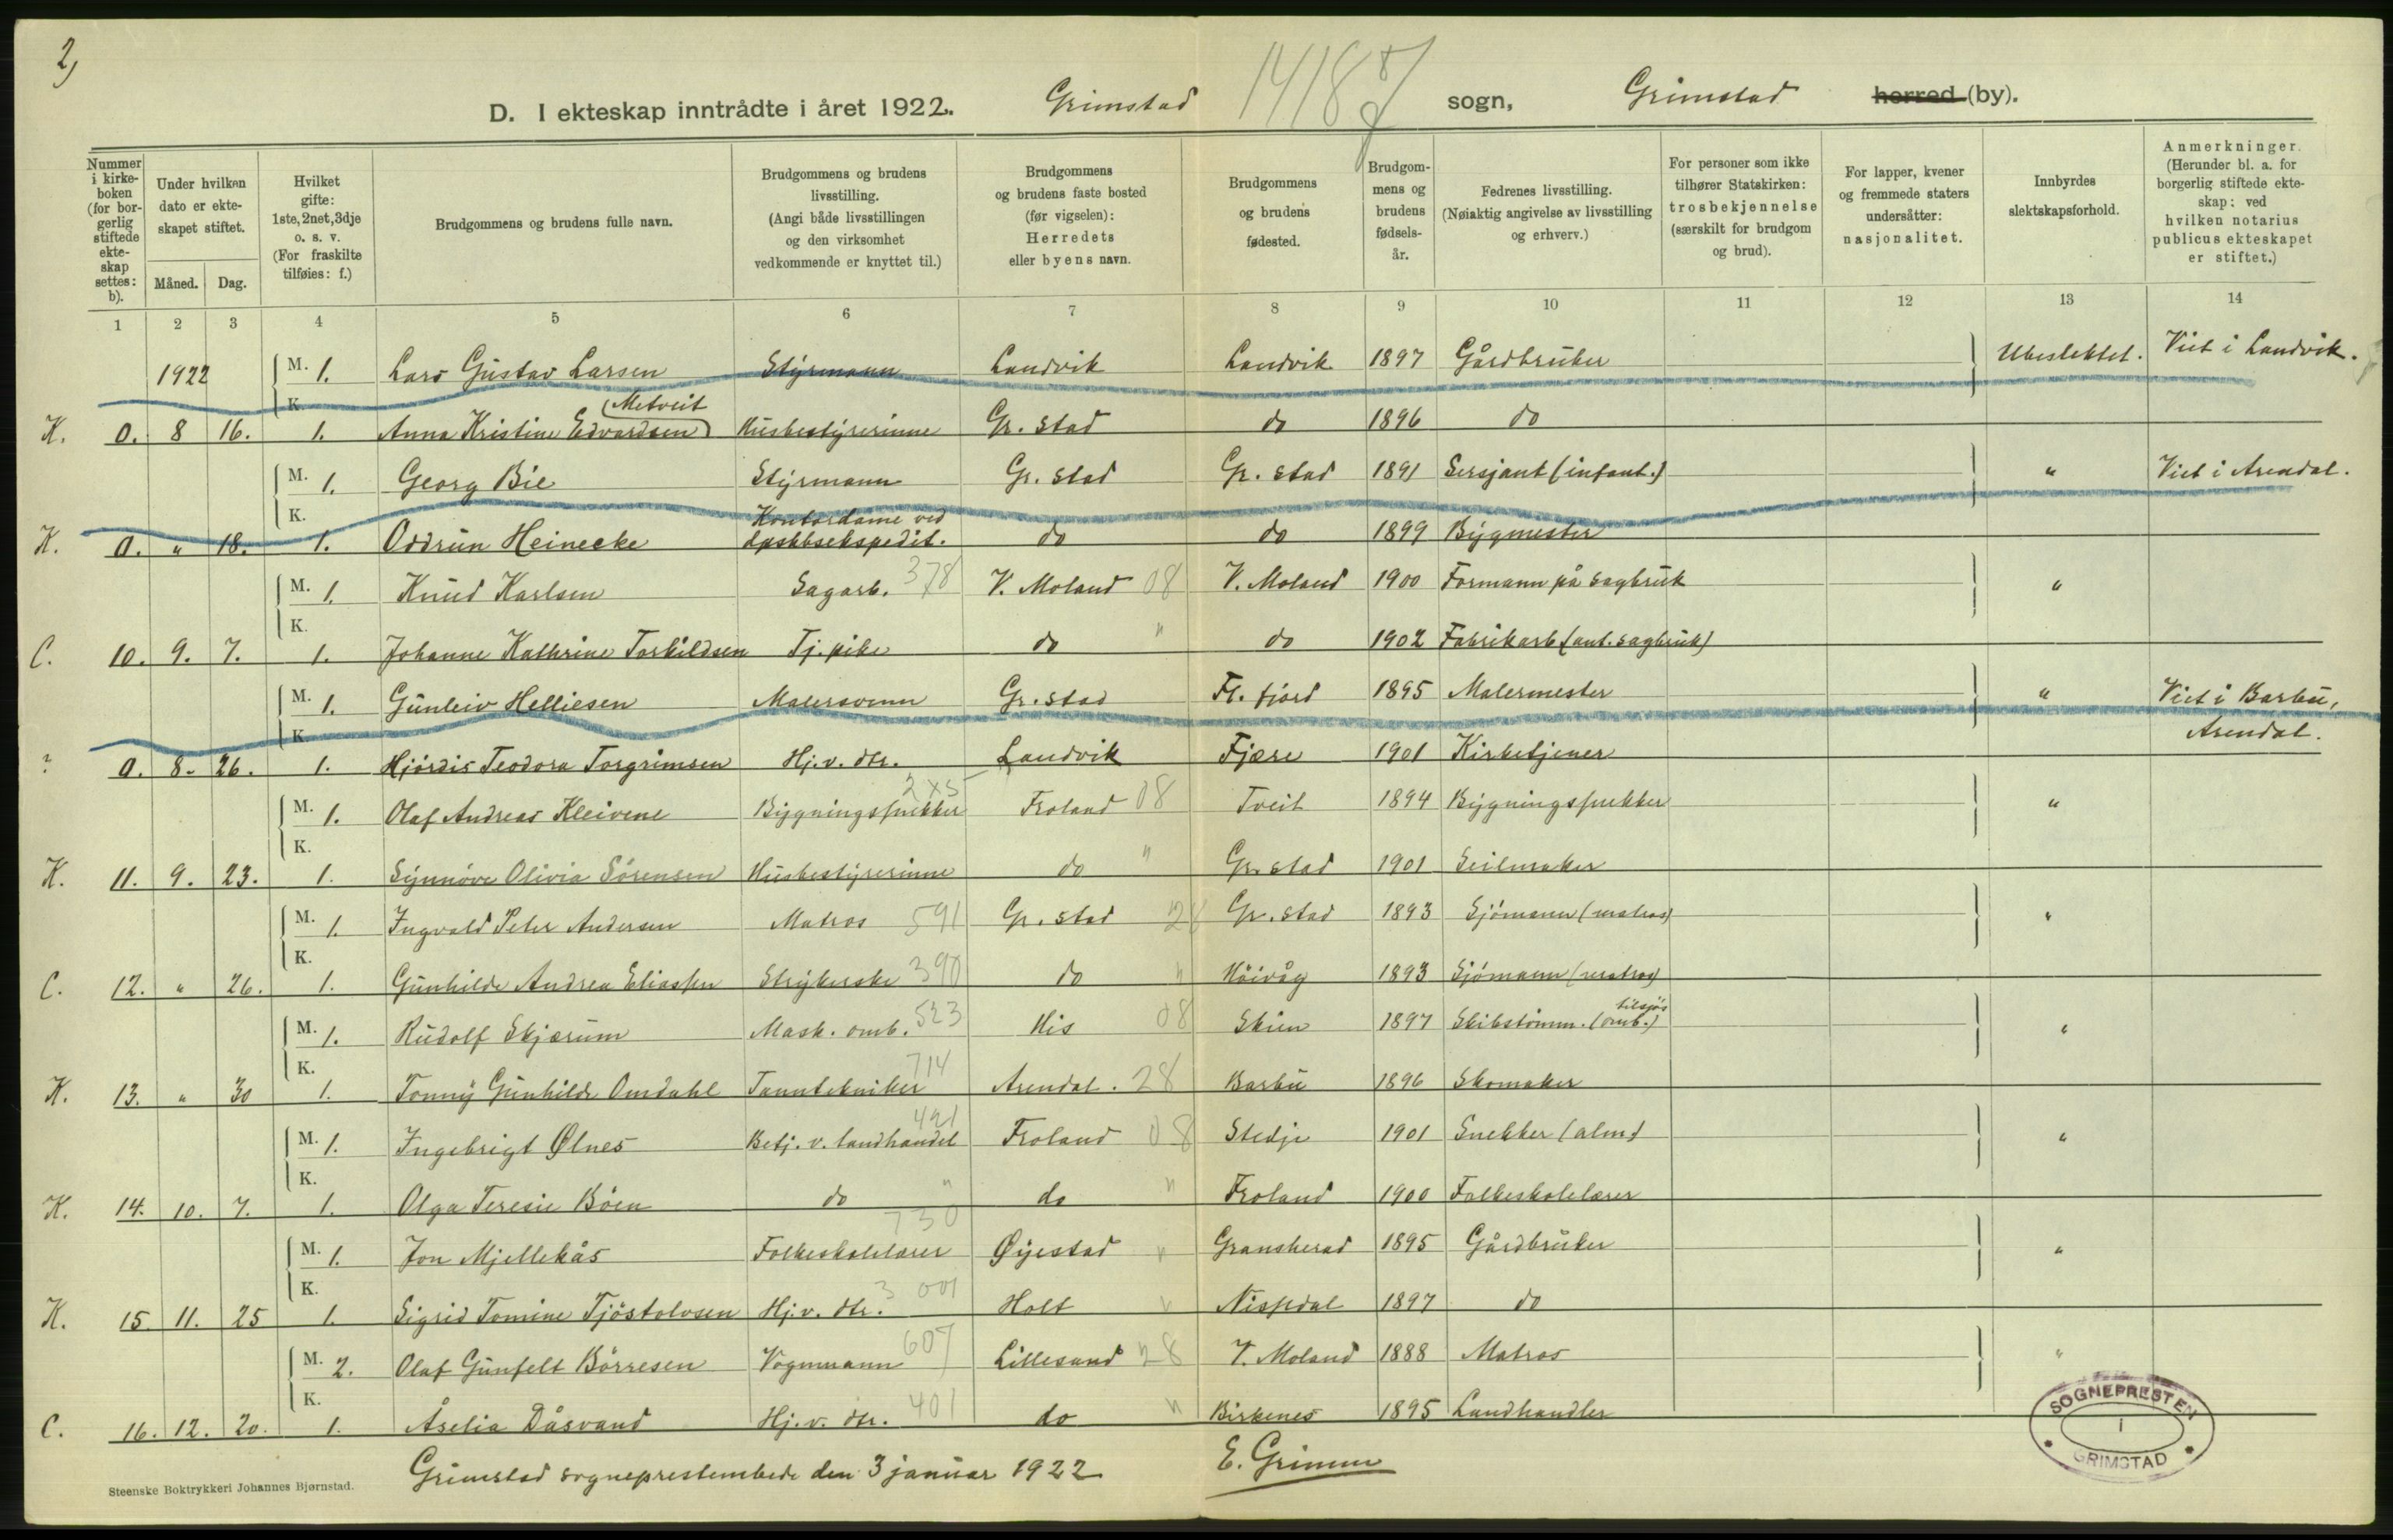 2)
D. I ekteskap inntrådte i året 1922. Grimstad 1418 sogn, Grimstad herred (by).
Nummer i kirkeboken (for borgerlig stiftede ekteskap settes: b).
Under hvilken dato er ekteskapet stiftet.
Måned. Dag.
Hvilket gifte: 1ste, 2net, 3dje o. s. v. (For fraskilte tilføies: f.)
Brudgommens og brudens fulle navn.
Brudgommens og brudens livsstilling. (Angi både livsstillingen og den virksomhet vedkommende er knyttet til.)
Brudgommens og brudens faste bosted (før vigselen): Herredets eller byens navn.
Brudgommens og brudens fødested.
Brudgommens og brudens fødselsår.
Fedrenes livsstilling. (Nøiaktig angivelse av livsstilling og erhverv.)
For personer som ikke tilhører Statskirken: trosbekjennelse (særskilt for brudgom og brud).
For lapper, kvener og fremmede staters undersåtter: nasjonalitet.
Innbyrdes slektskapsforhold.
Anmerkninger. (Herunder bl. a. for borgerlig stiftede ekteskap: ved hvilken notarius publicus ekteskapet er stiftet.)
1 2 3 4 5 6 7 8 9 10 11 12 13 14
1922 M. 1. Lars Gustav Larsen Styrmann Landvik Landvik 1897 Gårdbruker Ubeslektet. Viet i Landvik.
K. 0. 8 16. K. 1. Anna Kristine Edvardsen (Metveit) Husbestyrerinne Gr. stad do 1896 do
M. 1. Georg Bie Styrmann Gr. stad Gr. stad 1891 Sersjant (infant.) " Viet i Arendal.
K. 0. " 18. K. 1. Oddrun Heinecke Kontordame ved do do 1899 Bygmester
M. 1. Knud Karlsen Sagarb. 378 V. Moland 08 V. Moland 1900 Formann på sagbruk "
C. 10. 9. 7. K. 1. Johanne Kathrine Torkildsen Tj. pike do " do 1902 Fabrikarb. (ant. sagbruk)
M. 1. Gunleiv Helliesen Malersvenn Gr. stad Fl. fjord 1895 Malermester " Viet i Barbu, Arendal.
? 0. 8. 26. K. 1. Hjördis Teodora Torgrimsen Hj. v. dtr. Landvik Fjære 1901 Kirketjener
M. 1. Olaf Andreas Kleivene Bygningssnekker Froland 08 Tveit 1894 Bygningssnekker "
K. 11. 9. 23. K. 1. Synnöve Olivia Sörensen Husbestyrerinne do " Gr. stad 1901 Seilmaker
M. 1. Ingvald Peter Andersen Matros 591 Gr. stad 28 Gr. stad 1893 Sjömann (matros) "
C. 12. " 26. K. 1. Gunhilde Andrea Eliassen Strykerske 390 do " Höivåg 1893 Sjömann (matros)
M. 1. Rudolf Skjærum Mask. omb. 523 His 08 Skien 1897 Skibstömm. (omb.) tilsjös "
K. 13. " 30 K. 1. Tonny Gunhilde Omdahl Tanntekniker 714 Arendal. 28 Barbu 1896 Skomaker
M. 1. Ingebrigt Ølnes Betj. v. landhandel 421 Froland 08 Stedje 1901 Snekker (alm.) "
K. 14. 10. 7. K. 1. Olga Teresie Böen do " do " Froland 1900 Folkeskolelærer
M. 1. Jon Mjellekås Folkeskolelærer 730 Øyestad " Gransherad 1895 Gårdbruker "
K. 15. 11. 25 K. 1. Sigrid Tomine Tjöstolvsen Hj. v. dtr. 3 001 Holt " Nissedal 1897 do
M. 2. Olaf Gunfelt Börresen Vognmann 607 Lillesand 28 V. Moland 1888 Matros "
C. 16. 12. 20. K. 1. Åselia Dåsvand Hj. v. dtr. 401 do " Birkenes 1895 Landhandler
Grimstad sogneprestembede den 3 januar 1922 E. Grimm
SOGNEPRESTEN I GRIMSTAD
Steenske Boktrykkeri Johannes Bjørnstad.